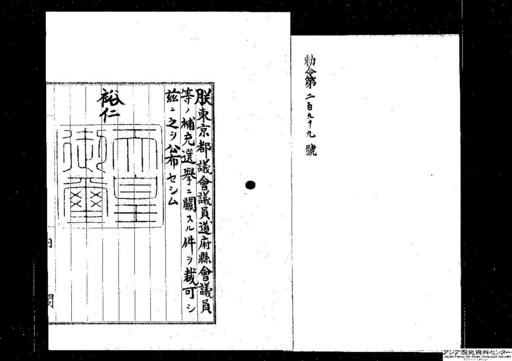 勅令第二百九十九號
朕東京都議會議員道府縣會議員
等ノ補充選擧ニ關スル件ヲ裁可シ
茲ニ之ヲ公布セシム
裕仁
天皇
御璽
内閣
アジア歴史資料センター